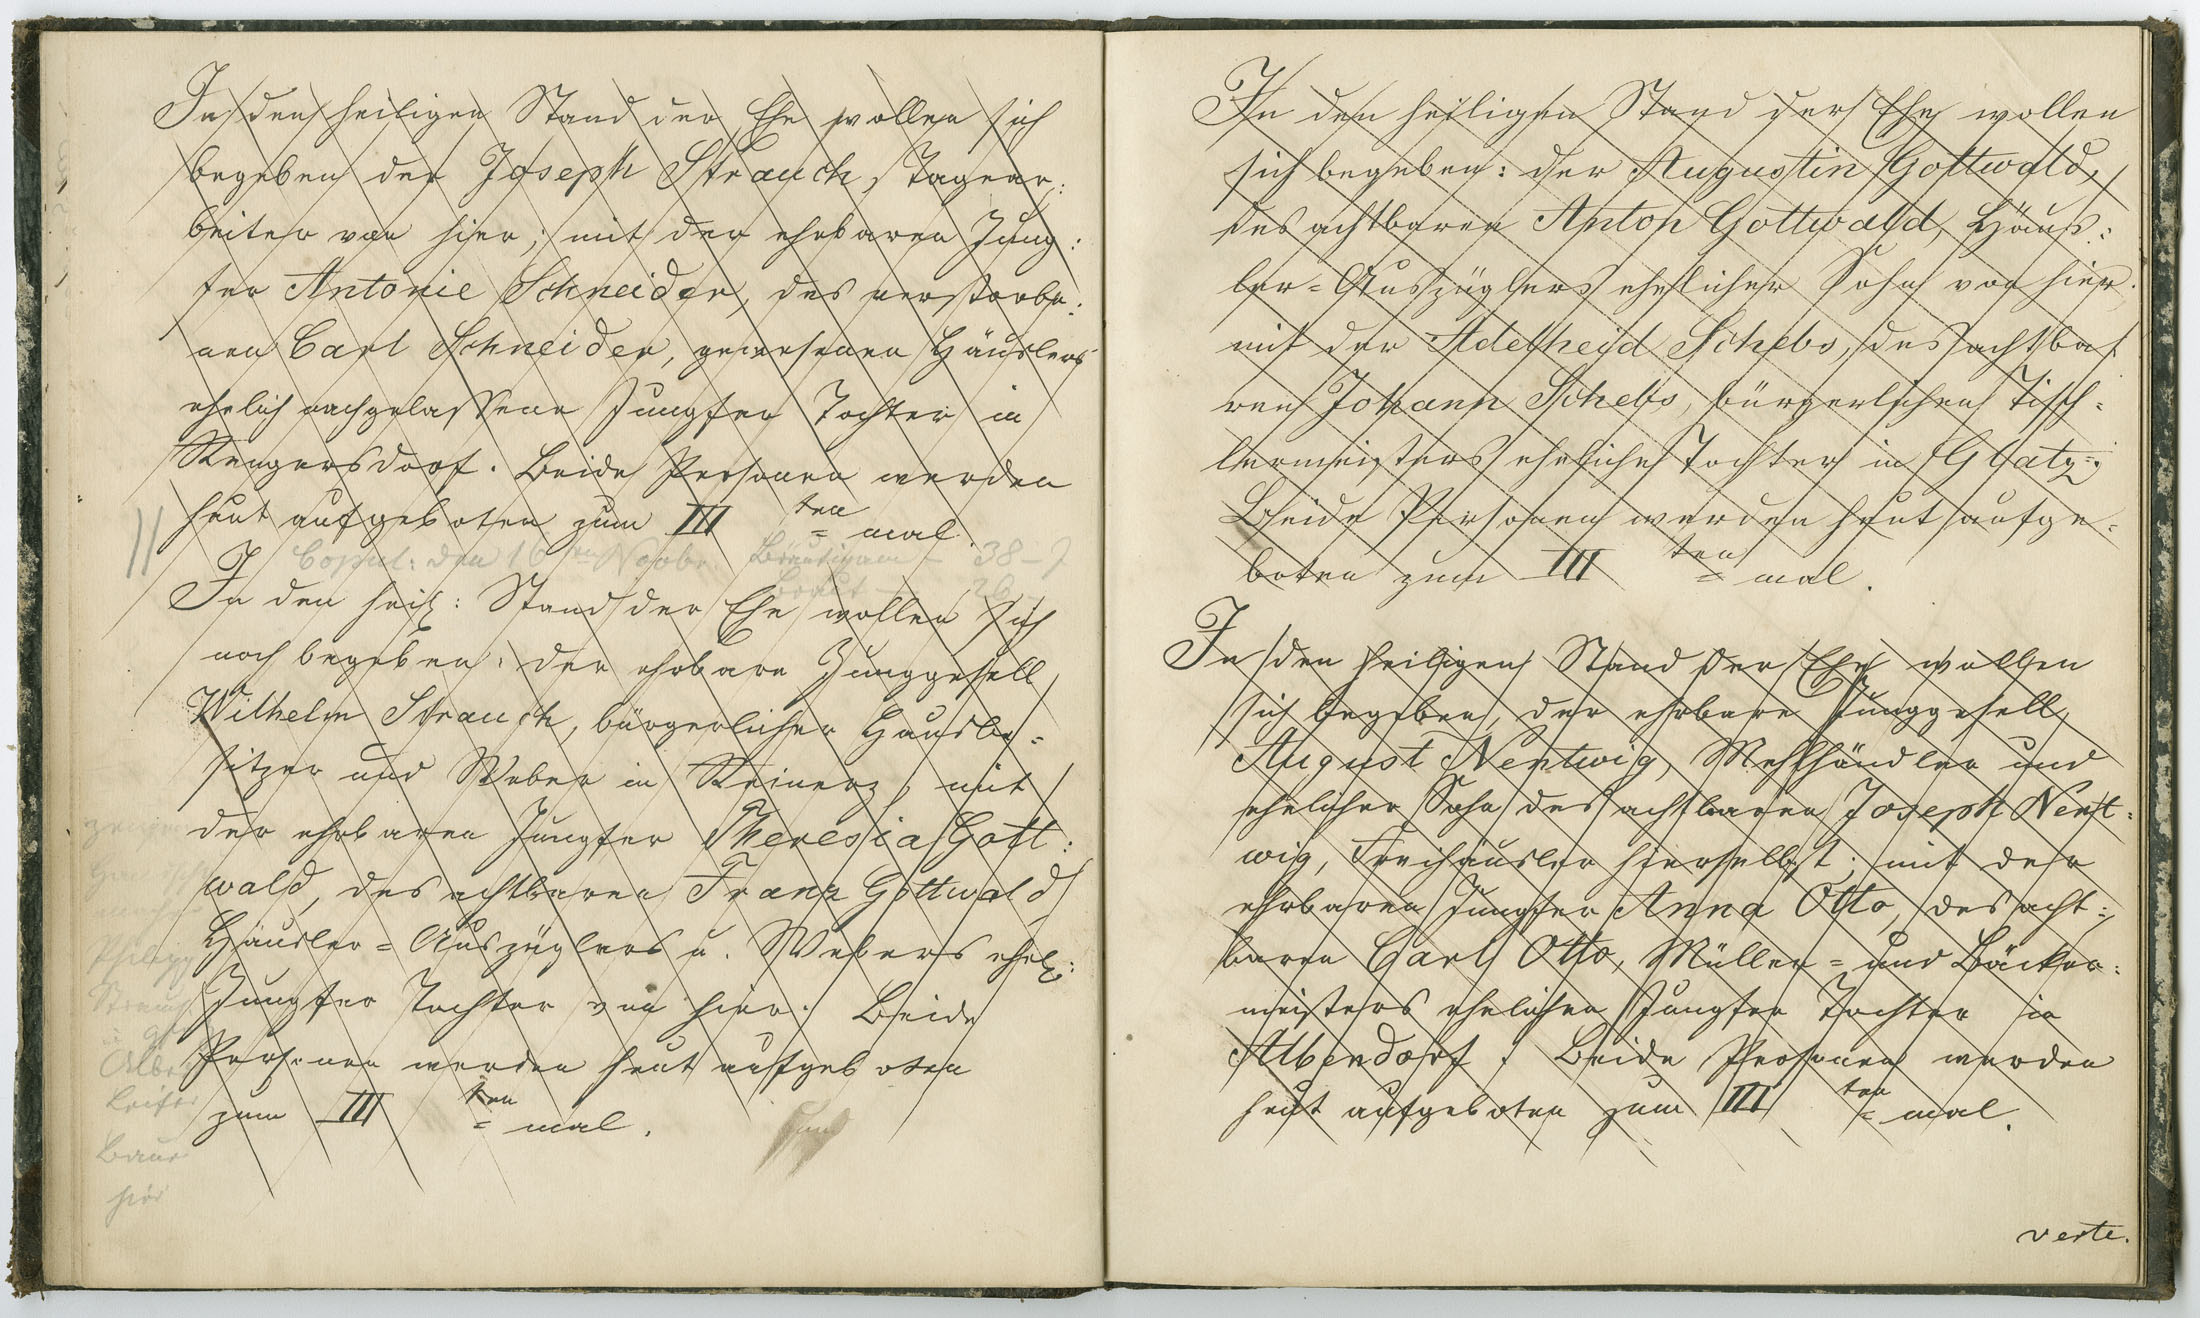 In den heiligen Stand der Ehe wollen sich
begeben der Joseph Strauch, Tagear:
beiter von hier; mit der ehrbaren Jung:
fer Antonie Schneider, des verstorbe:
nen Carl Schneider, gewesenen Häuslers
ehelich nachgelassene Jungfer Tochter in
Rengersdorf. Beide Personen werden
heut aufgeboten zum III ten = mal.
Copul: den 16ten Novbr. Bräutigam – 38 – J
Braut – 26 –
In den heil: Stand der Ehe wollen sich
noch begeben: der ehrbare Junggesell
Wilhelm Strauch, bürgerlicher Hausbe=
sitzer und Weber in Reinerz, mit
der ehrbaren Jungfer Theresia Gott:
wald, des achtbaren Franz Gottwald
Häusler=Auszüglers u. Webers ehel:
Jungfer Tochter von hier. Beide
Personen werden heut aufgeboten
zum III ten = mal.
Strauch
Bauer
hier
In den heiligen Stand der Ehe wollen
sich begeben: der Augustin Gottwald,
des achtbaren Anton Gottwald, Häus:
ler=Auszüglers ehelicher Sohn von hier,
mit der Adelheid Schebs, des achtba:
ren Johann Schebs, bürgerlichen Tisch=
lermeisters eheliche Tochter in Glatz.
Beide Personen werden heut aufge=
boten zum III ten = mal.
In den heiligen Stand der Ehe wollen
sich begeben, der ehrbare Junggesell,
August Nentwig, Mehlhändler und
ehelicher Sohn des achtbaren Joseph Nent:
wig, Freihäusler hierselbst; mit der
ehrbaren Jungfer Anna Otto, des acht:
baren Carl Otto, Müller= und Bäcker:
meisters ehelichen Jungfer Tochter in
Albendorf. Beide Personen werden
heut aufgeboten zum III ten = mal.
verte.